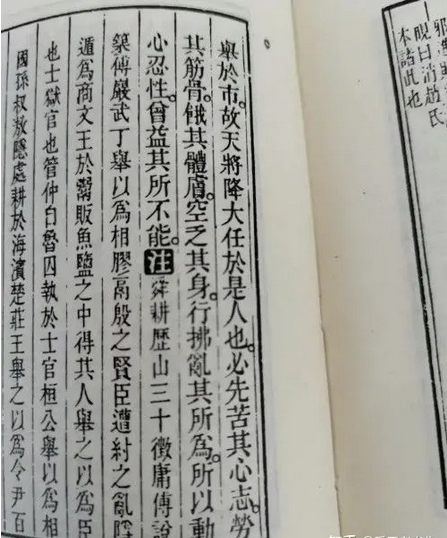 曰消趙氏
本詰此也
舉於市。故天將降大任於是人也。必先苦其心志。勞
其筋骨。餓其體膚。空乏其身。行拂亂其所爲。所以動
心忍性。曾益其所不能。注舜耕歷山三十徵庸傅說
築傅巖武丁舉以爲相膠鬲殷之賢臣遭紂之亂隱
遁爲商文王於鬻販魚鹽之中得其人舉之以爲臣
也士獄官也管仲自魯囚執於士官桓公舉以爲相
國孫叔敖隱處耕於海濱楚莊王舉之以爲令尹百